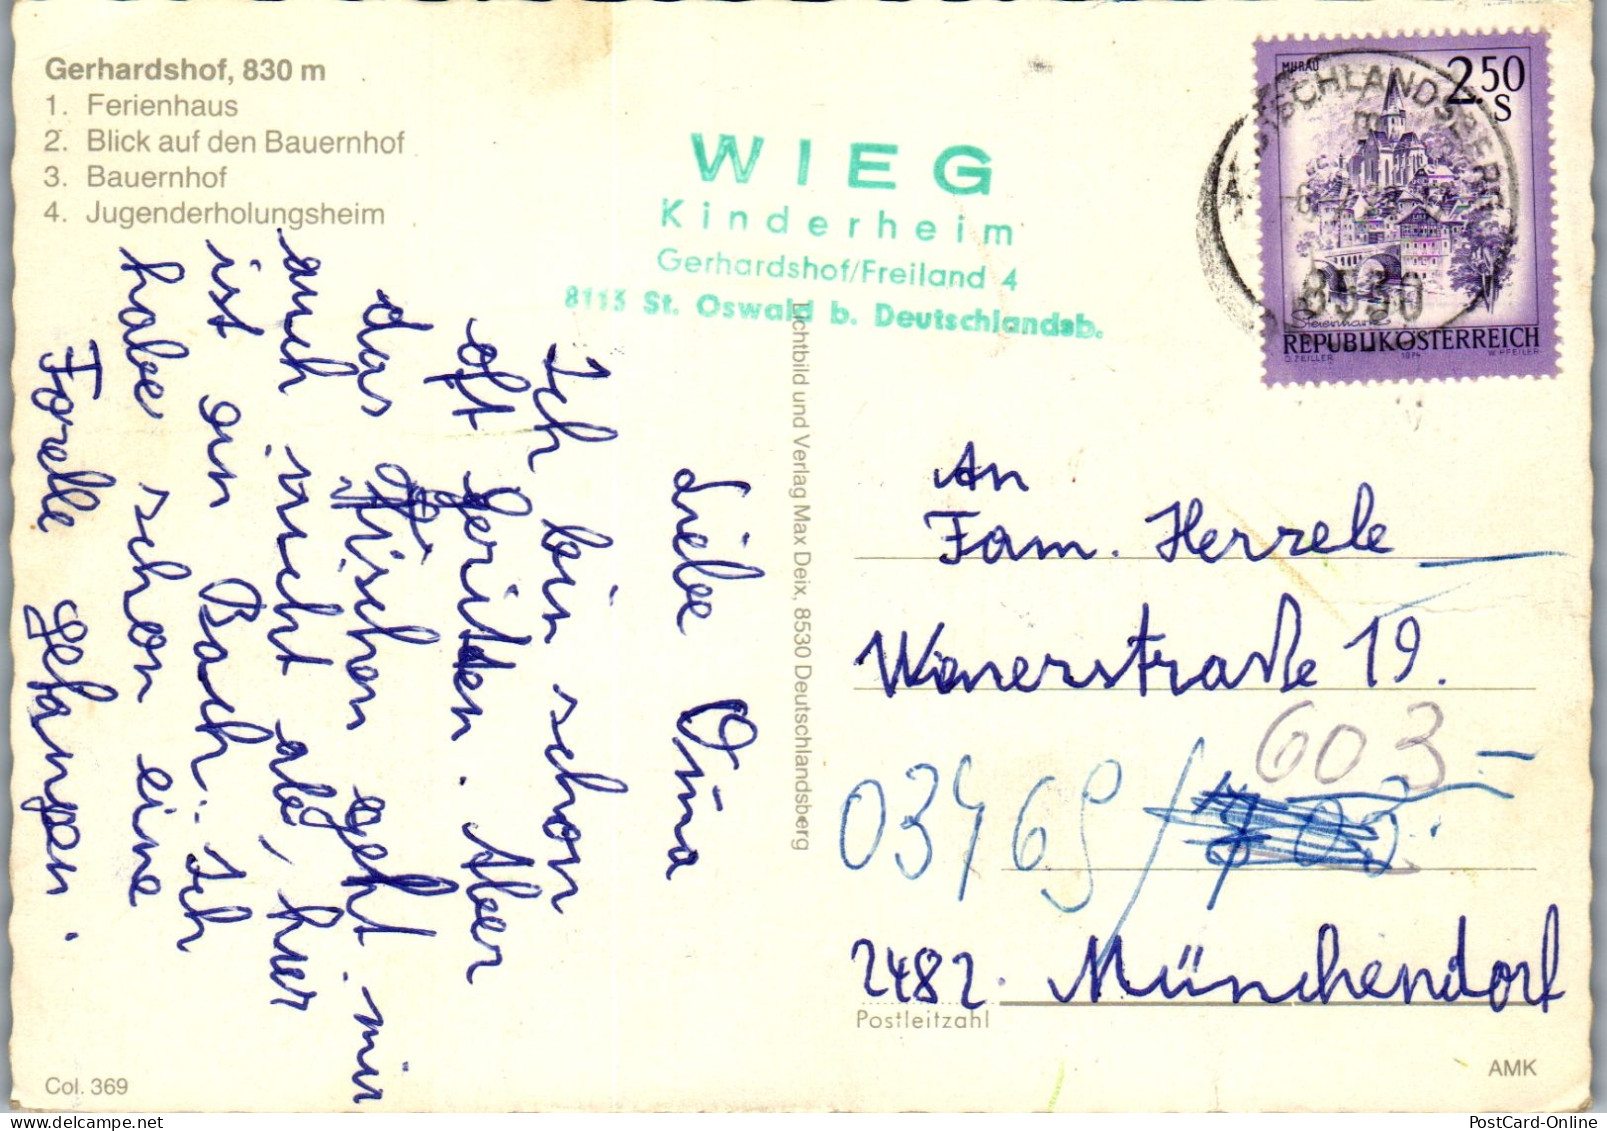 Gerhardshof, 830 m
1. Ferienhaus
2. Blick auf den Bauernhof
3. Bauernhof
4. Jugenderholungsheim
WIEG
Kinderheim
Gerhardshof/Freiland 4
8113 St. Oswald b. Deutschlandsb.
MURAU
2.50
S
8530
Steiermark
REPUBLIK ÖSTERREICH
O. ZEILLER 1974 W. PFEILER
Liebe Oma
Ich bin schon
oft geritten. Aber
das Fischen geht mir
auch nicht ab, hier
ist ein Bach. Ich
habe schon eine
Forelle gefangen.
Lichtbild und Verlag Max Deix, 8530 Deutschlandsberg
An
Fam. Herzele
Wienerstraße 19.
603
03469/
2482. Münchendorf
Postleitzahl
Col. 369
AMK
PostCard-Online